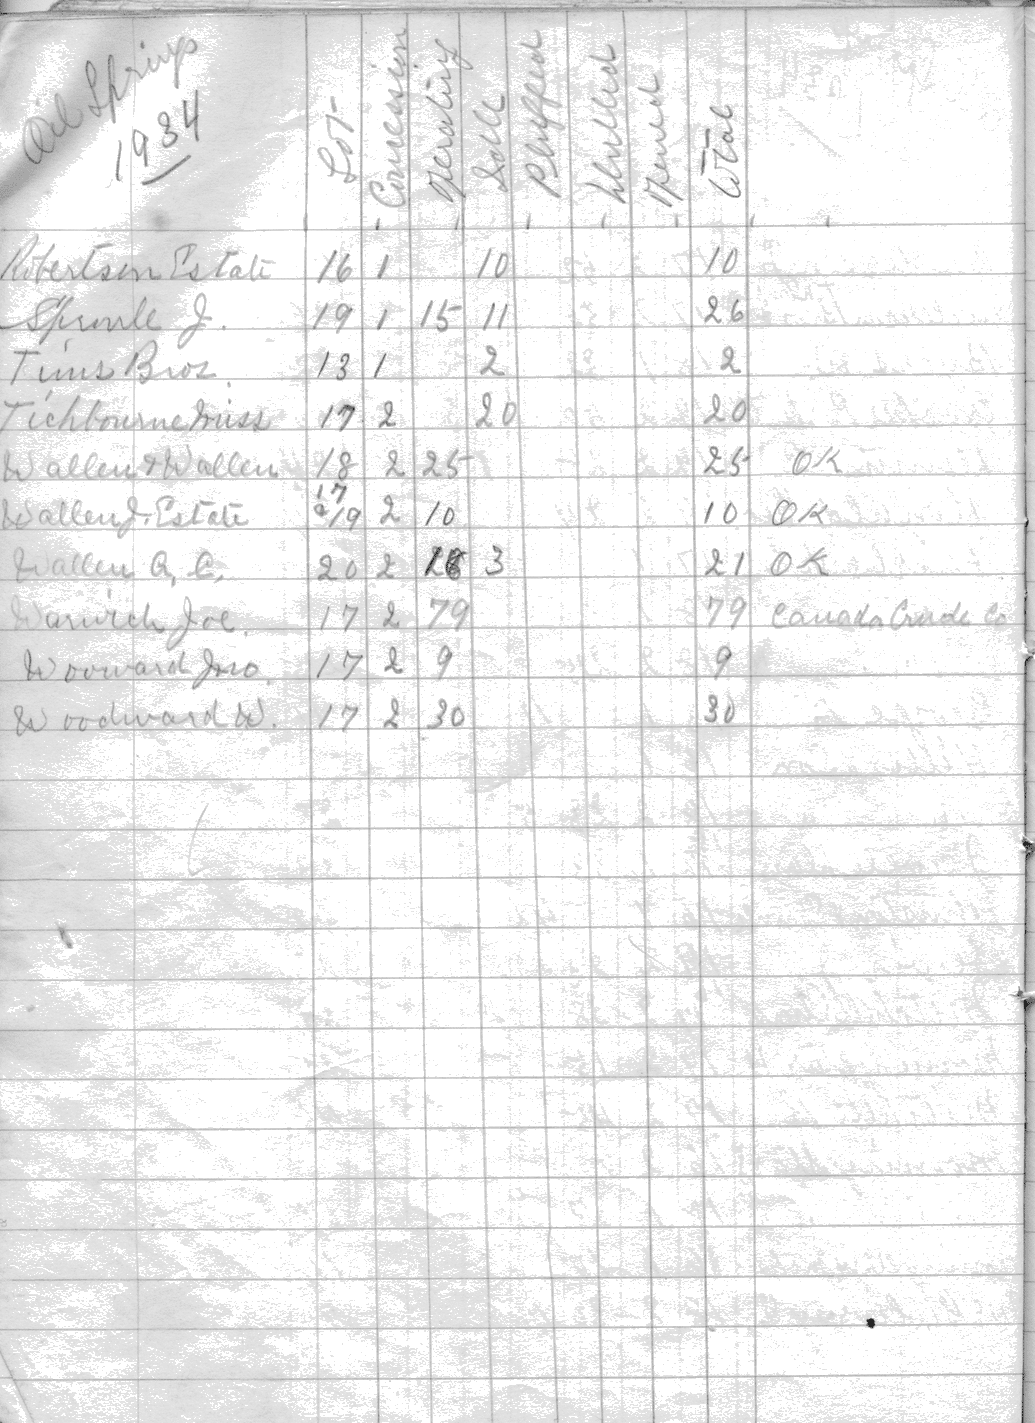 Oil Springs
1934
Lot Concession Operating Idle Plugged Drilled Opened Total
Robertson Estate 16 1 10 10
Sproule J. 19 1 15 11 26
Tims Bros. 13 1 2 2
Tichbourne Miss 17 2 20 20
Wallen & Wallen 18 2 25 25 OK
Wallen J. Estate 17 & 19 2 10 10 OK
Wallen A. C. 20 2 18 3 21 OK
Warwick Joe. 17 2 79 79 Canada Crude Co
Woowward Jno. 17 2 9 9
Woodward W. 17 2 30 30